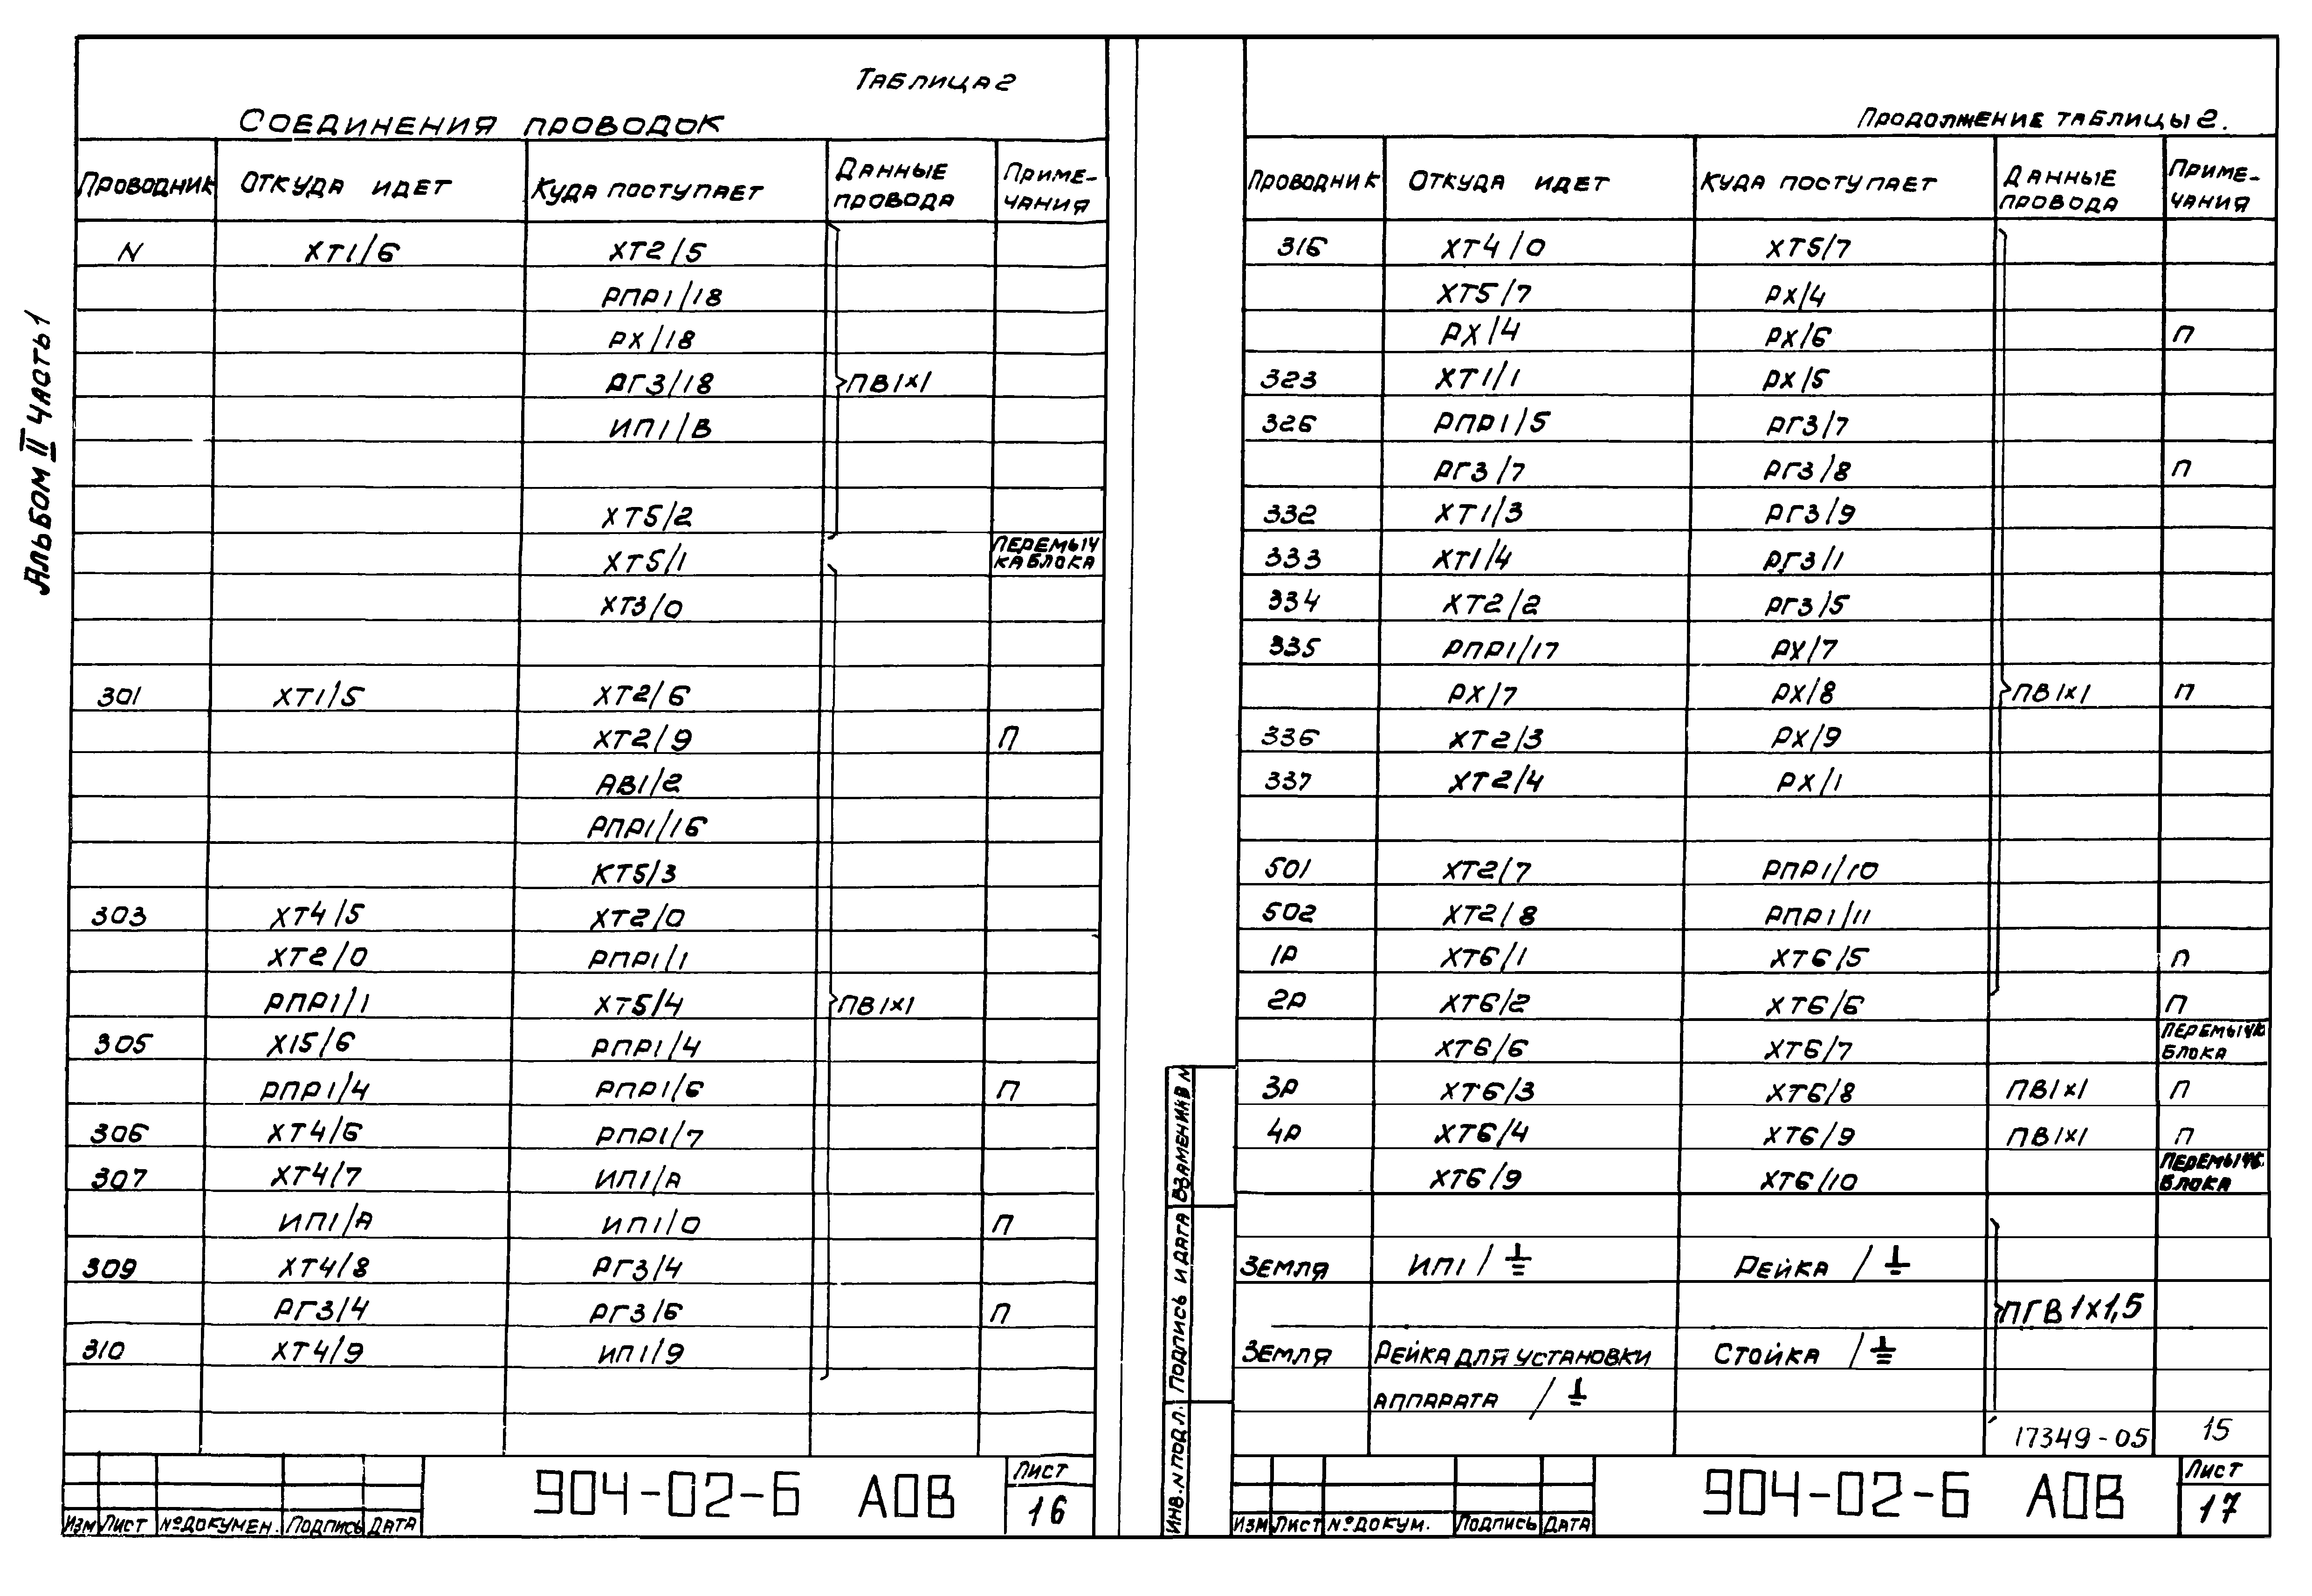 Альбом II часть 1
Таблица 2
Соединения проводок
Проводник Откуда идет Куда поступает Данные провода Примечания
N ХТ1/6 ХТ2/5
РПР1/18
РХ/18
РГ3/18 ПВ1х1
ИП1/В
ХТ5/2
ХТ5/1 Перемыч ка блока
ХТ3/0
301 ХТ1/5 ХТ2/6
ХТ2/9 П
АВ1/2
РПР1/16
КТ5/3
303 ХТ4/5 ХТ2/0
ХТ2/0 РПР1/1
РПР1/1 ХТ5/4 ПВ1х1
305 Х15/6 РПР1/4
РПР1/4 РПР1/6 П
306 ХТ4/6 РПР1/7
307 ХТ4/7 ИП1/А
ИП1/А ИП1/0 П
309 ХТ4/8 РГ3/4
РГ3/4 РГ3/6 П
310 ХТ4/9 ИП1/9
Изм Лист № докумен. Подпись Дата
904-02-6 АОВ
Лист
16
Продолжение таблицы 2.
Проводник Откуда идет Куда поступает Данные провода Приме-чания
316 ХТ4/0 ХТ5/7
ХТ5/7 РХ/4
РХ/4 РХ/6 П
323 ХТ1/1 РХ/5
326 РПР1/5 РГ3/7
РГ3/7 РГ3/8 П
332 ХТ1/3 РГ3/9
333 ХТ1/4 РГ3/1
334 ХТ2/2 РГ3/5
335 РПР1/17 РХ/7
РХ/7 РХ/8 ПВ1х1 П
336 ХТ2/3 РХ/9
337 ХТ2/4 РХ/1
501 ХТ2/7 РПР1/10
502 ХТ2/8 РПР1/11
1Р ХТ6/1 ХТ6/5 П
2Р ХТ6/2 ХТ6/6 П
ХТ6/6 ХТ6/7 блока
3Р ХТ6/3 ХТ6/8 ПВ1х1 П
4Р ХТ6/4 ХТ6/9 ПВ1х1 П
ХТ6/9 ХТ6/10 блока
Земля ИП1/⏚ Рейка /⏚
ПГВ 1х1,5
Земля Рейка для установки Стойка /⏚
аппарата /⏚
17349-05 15
Взамен инв N
Подпись и дата
Инв. N подл.
Изм Лист № докум. Подпись Дата
904-02-6 АОВ
Лист
17